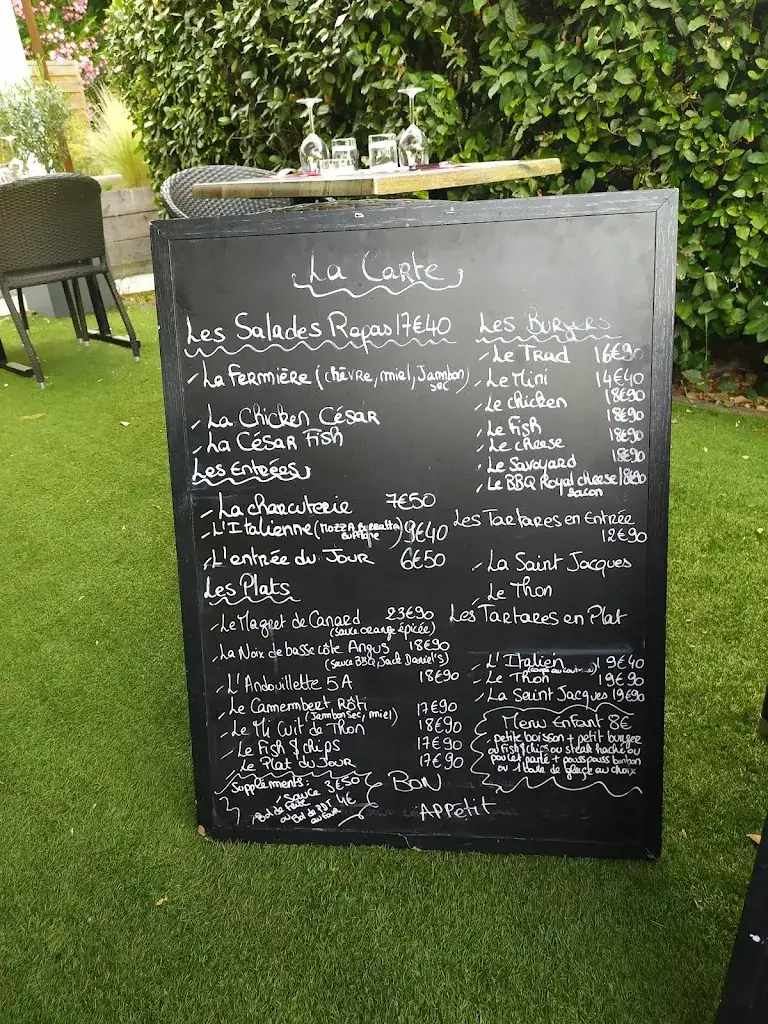 La Carte
Les Salades Repas 17€40
La Fermière (chèvre, miel, Jambon sec)
La Chicken César
La César Fish
Les Entrées
La charcuterie 7€50
L'Italienne (Mozza Burratta 9€40
L'entrée du Jour 6€50
Les Plats
Le Magret de Canard 23€90
(sauce orange épicée)
La Noix de basse côte Angus 18€90
(Sauce BBQ, Jack Daniel's)
L'Andouillette 5A 18€90
Le Camembert Rôti 17€90
(Jambon Sec, miel)
Le Mi Cuit de Thon 18€90
Le Fish & chips 17€90
Le Plat du Jour 17€90
Suppléments:
Sauce 3€50
Bol de
ou Bol de PDT 4€
au four
Les Burgers
Le Trad 16€90
Le Mini 14€40
Le chicken 18€90
Le Fish 18€90
Le cheese 18€90
Le Savoyard 18€90
Le BBQ Royal cheese 18€90
bacon
Les Tartares en Entrée
12€90
La Saint Jacques
Le Thon
Les Tartares en Plat
L'Italien 19€40
Le Thon 19€90
La Saint Jacques 19€90
Menu Enfant 8€
petite boisson + petit burger
ou fish & chips ou steak haché ou
poulet pané + pouss pouss bonbon
ou 1 boule de glace au choix
Bon
Appétit